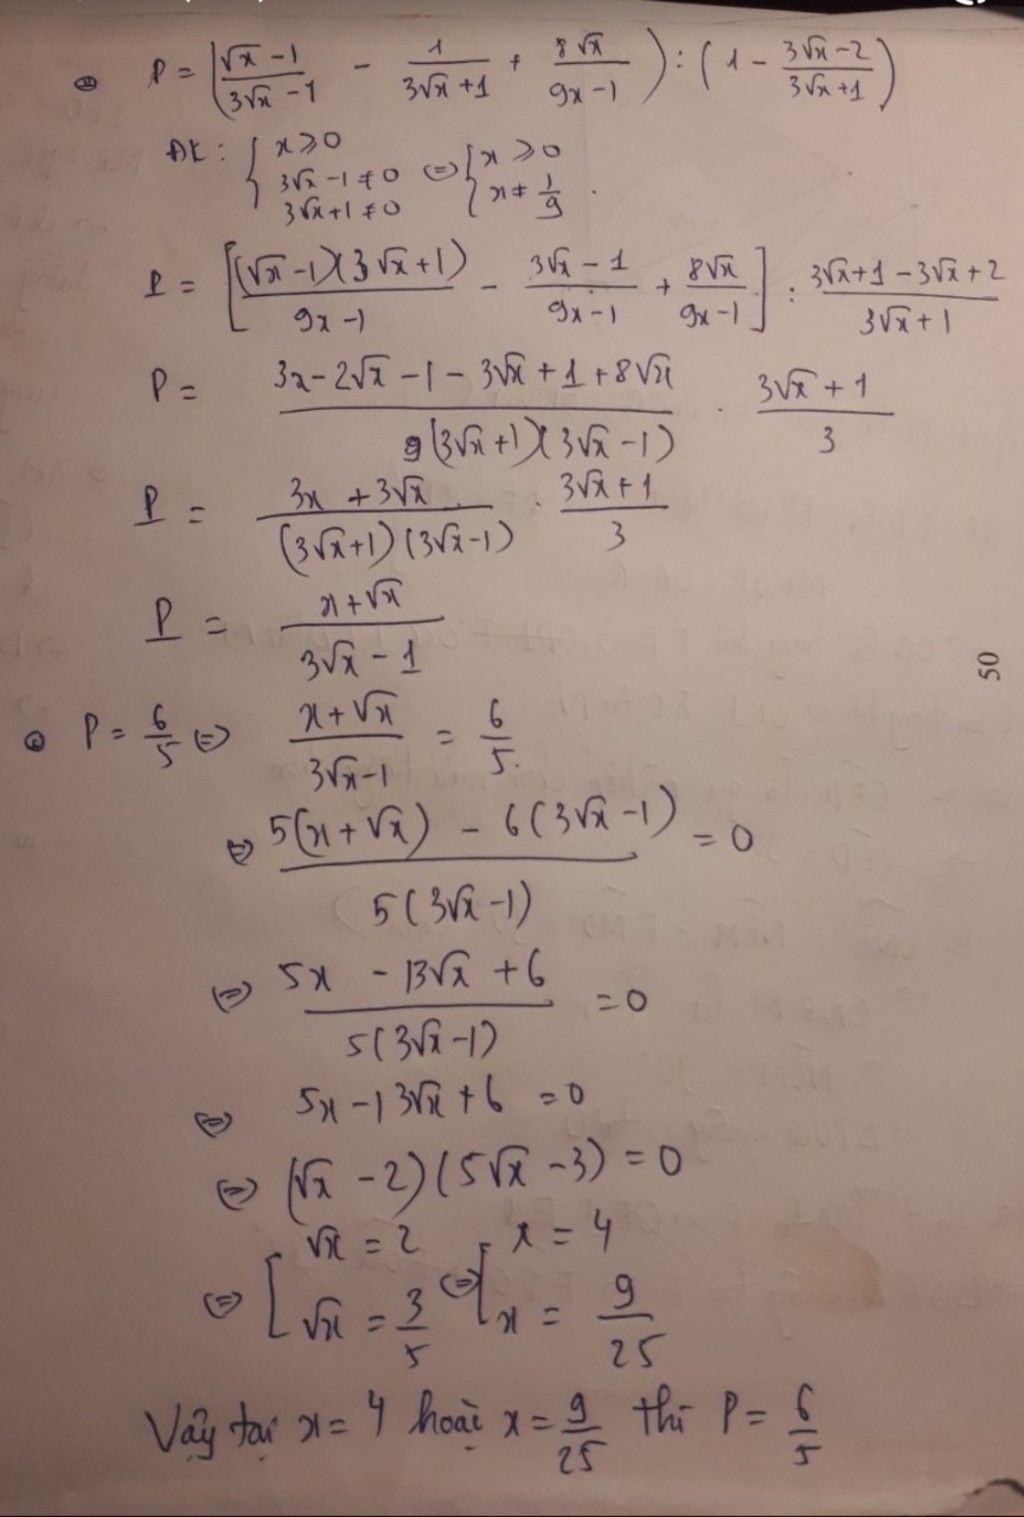 P = (√x - 1 / 3√x - 1 - 1 / 3√x + 1 + 8√x / 9x - 1) : (1 - 3√x - 2 / 3√x + 1)
ĐK : { x ⩾ 0 ; 3√x - 1 ≠ 0 ; 3√x + 1 ≠ 0 ⇔ { x ⩾ 0 ; x ≠ 1/9 .
P = [(√x - 1)(3√x + 1) / 9x - 1 - 3√x - 1 / 9x - 1 + 8√x / 9x - 1] : 3√x + 1 - 3√x + 2 / 3√x + 1
P = 3x - 2√x - 1 - 3√x + 1 + 8√x / (3√x + 1)(3√x - 1) . 3√x + 1 / 3
P = 3x + 3√x / (3√x + 1)(3√x - 1) . 3√x + 1 / 3
P = x + √x / 3√x - 1
50
P = 6/5 ⇔ x + √x / 3√x - 1 = 6/5.
⇔ 5(x + √x) - 6(3√x - 1) / 5(3√x - 1) = 0
⇔ 5x - 13√x + 6 / 5(3√x - 1) = 0
⇔ 5x - 13√x + 6 = 0
⇔ (√x - 2)(5√x - 3) = 0
⇔ [ √x = 2 ; √x = 3/5 ⇔ [ x = 4 ; x = 9/25
Vậy tại x = 4 hoặc x = 9/25 thì P = 6/5